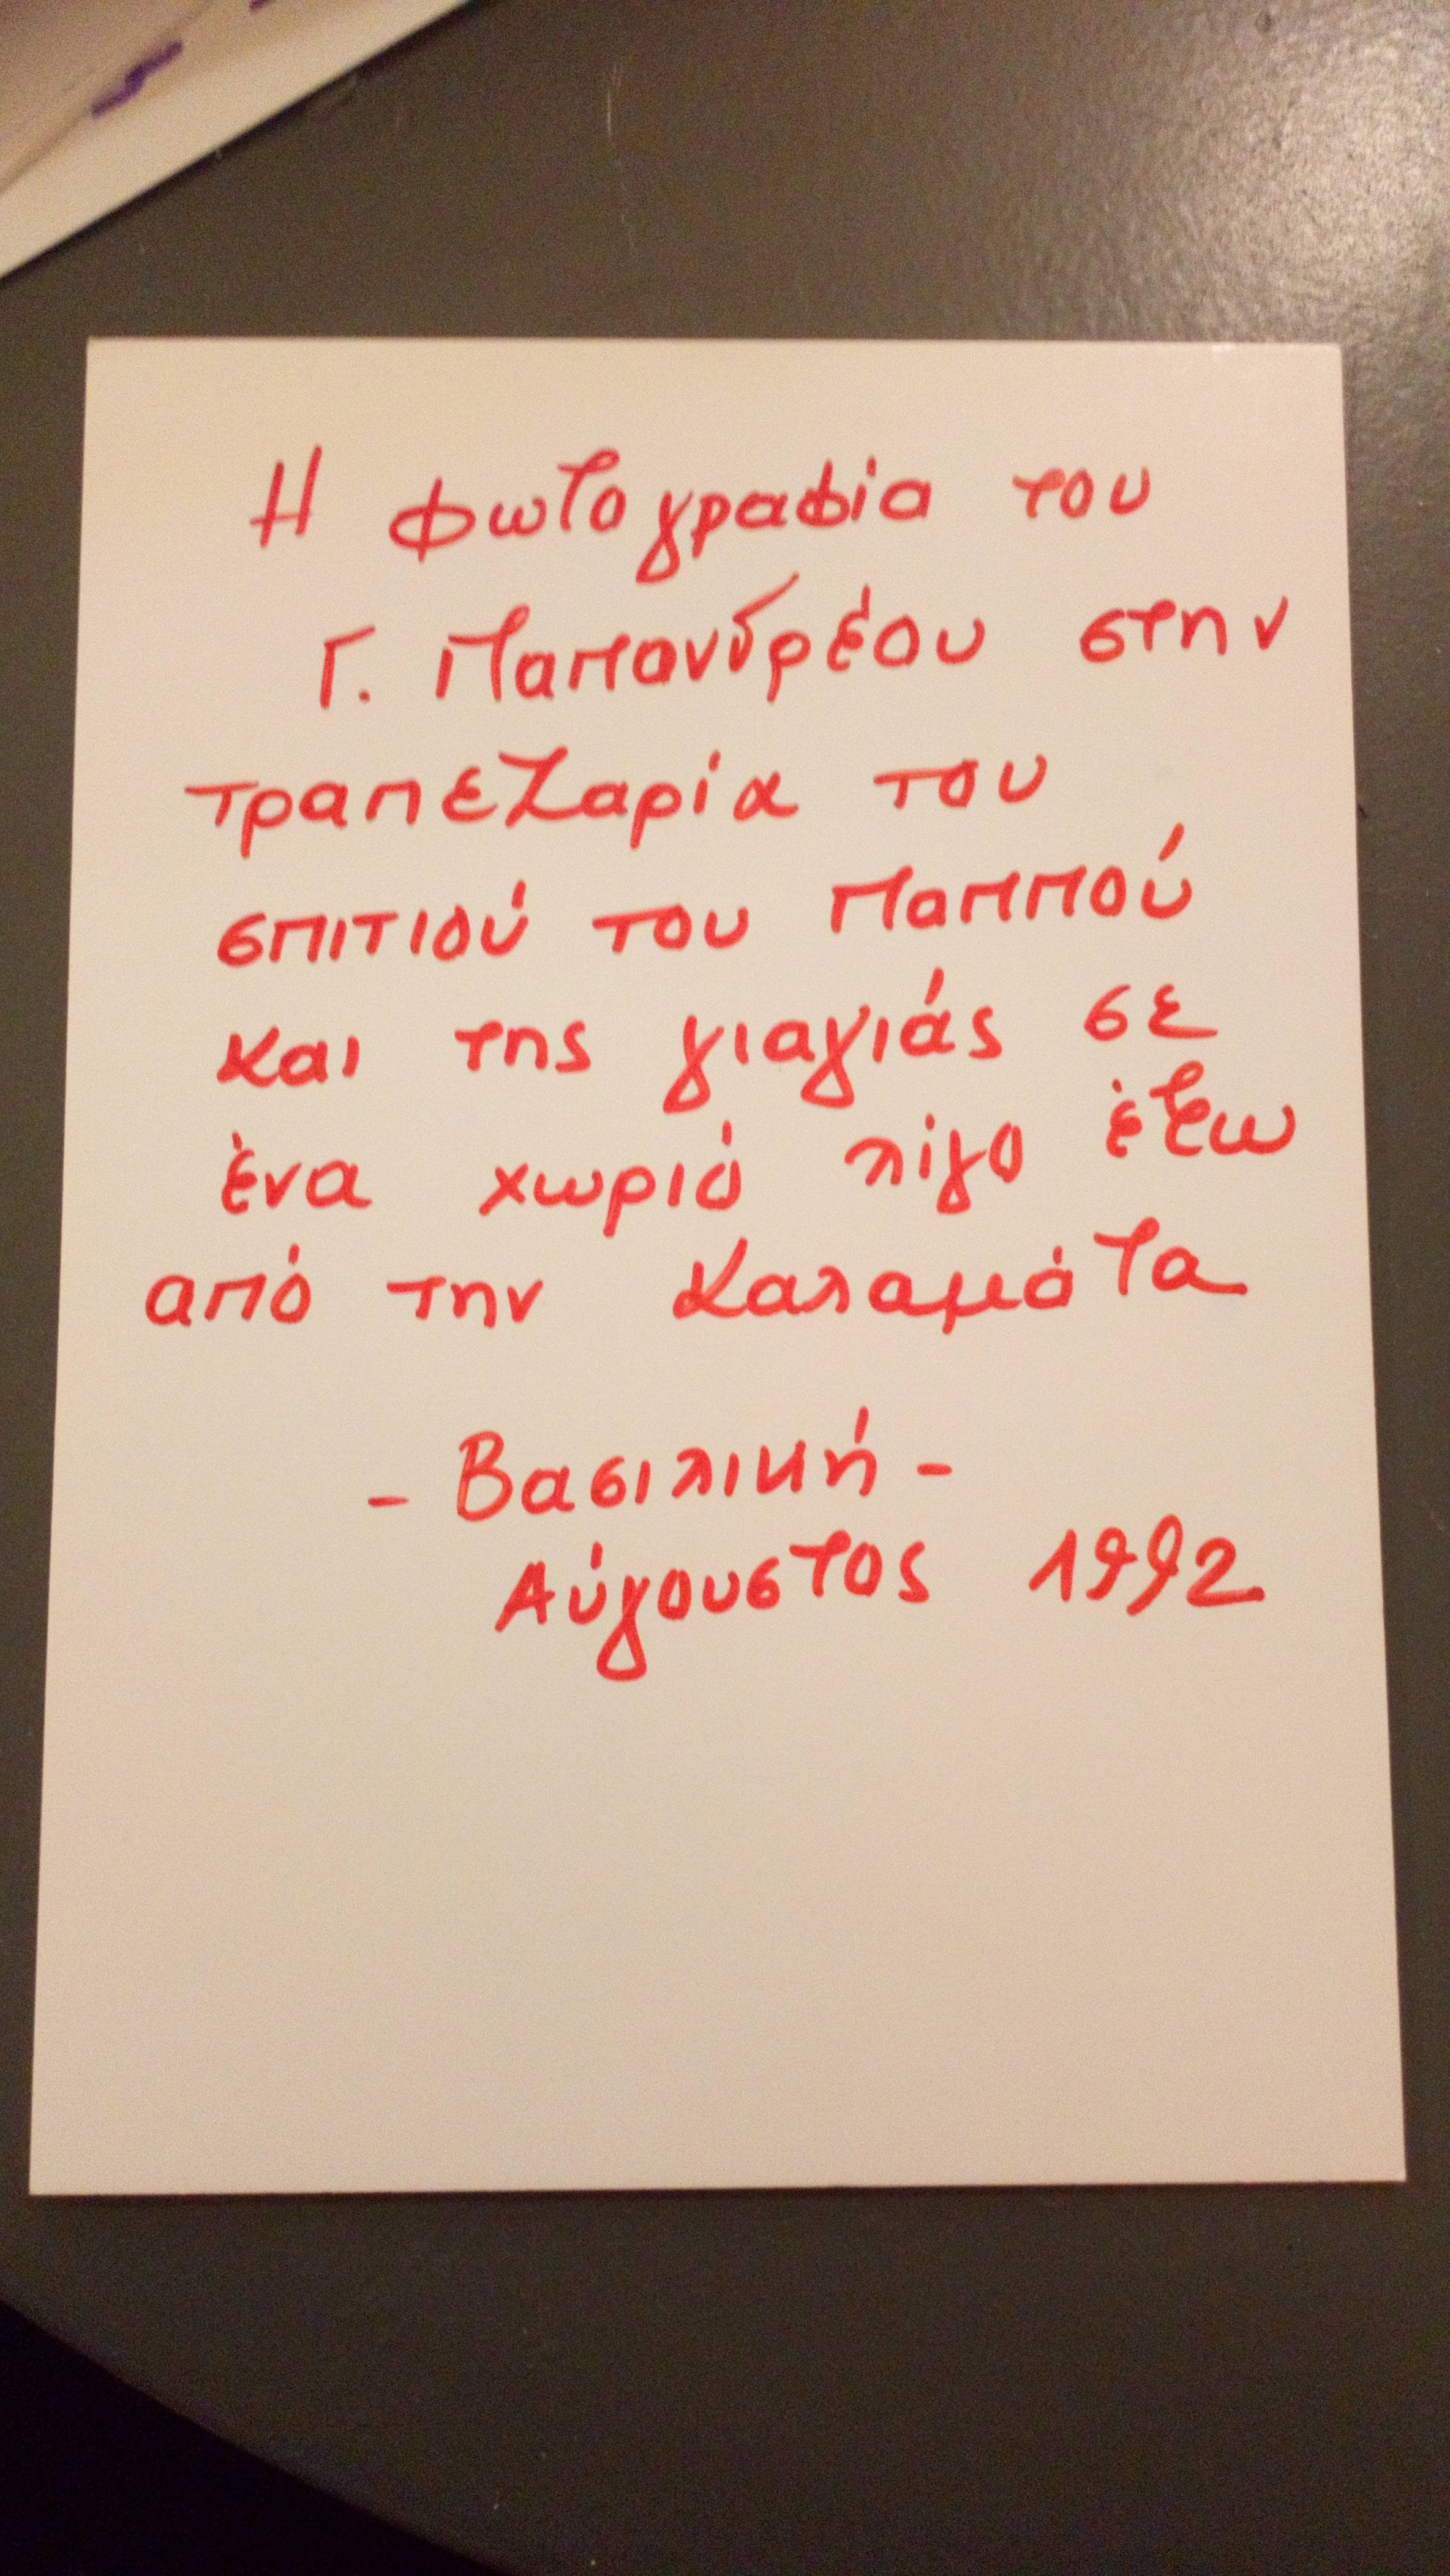 Η φωτογραφία του
Γ. Παπανδρέου στην
τραπεζαρία του
σπιτιού του παππού
και της γιαγιάς σε
ένα χωριό λίγο έξω
από την Καλαμάτα
- Βασιλική -
Αύγουστος 1992